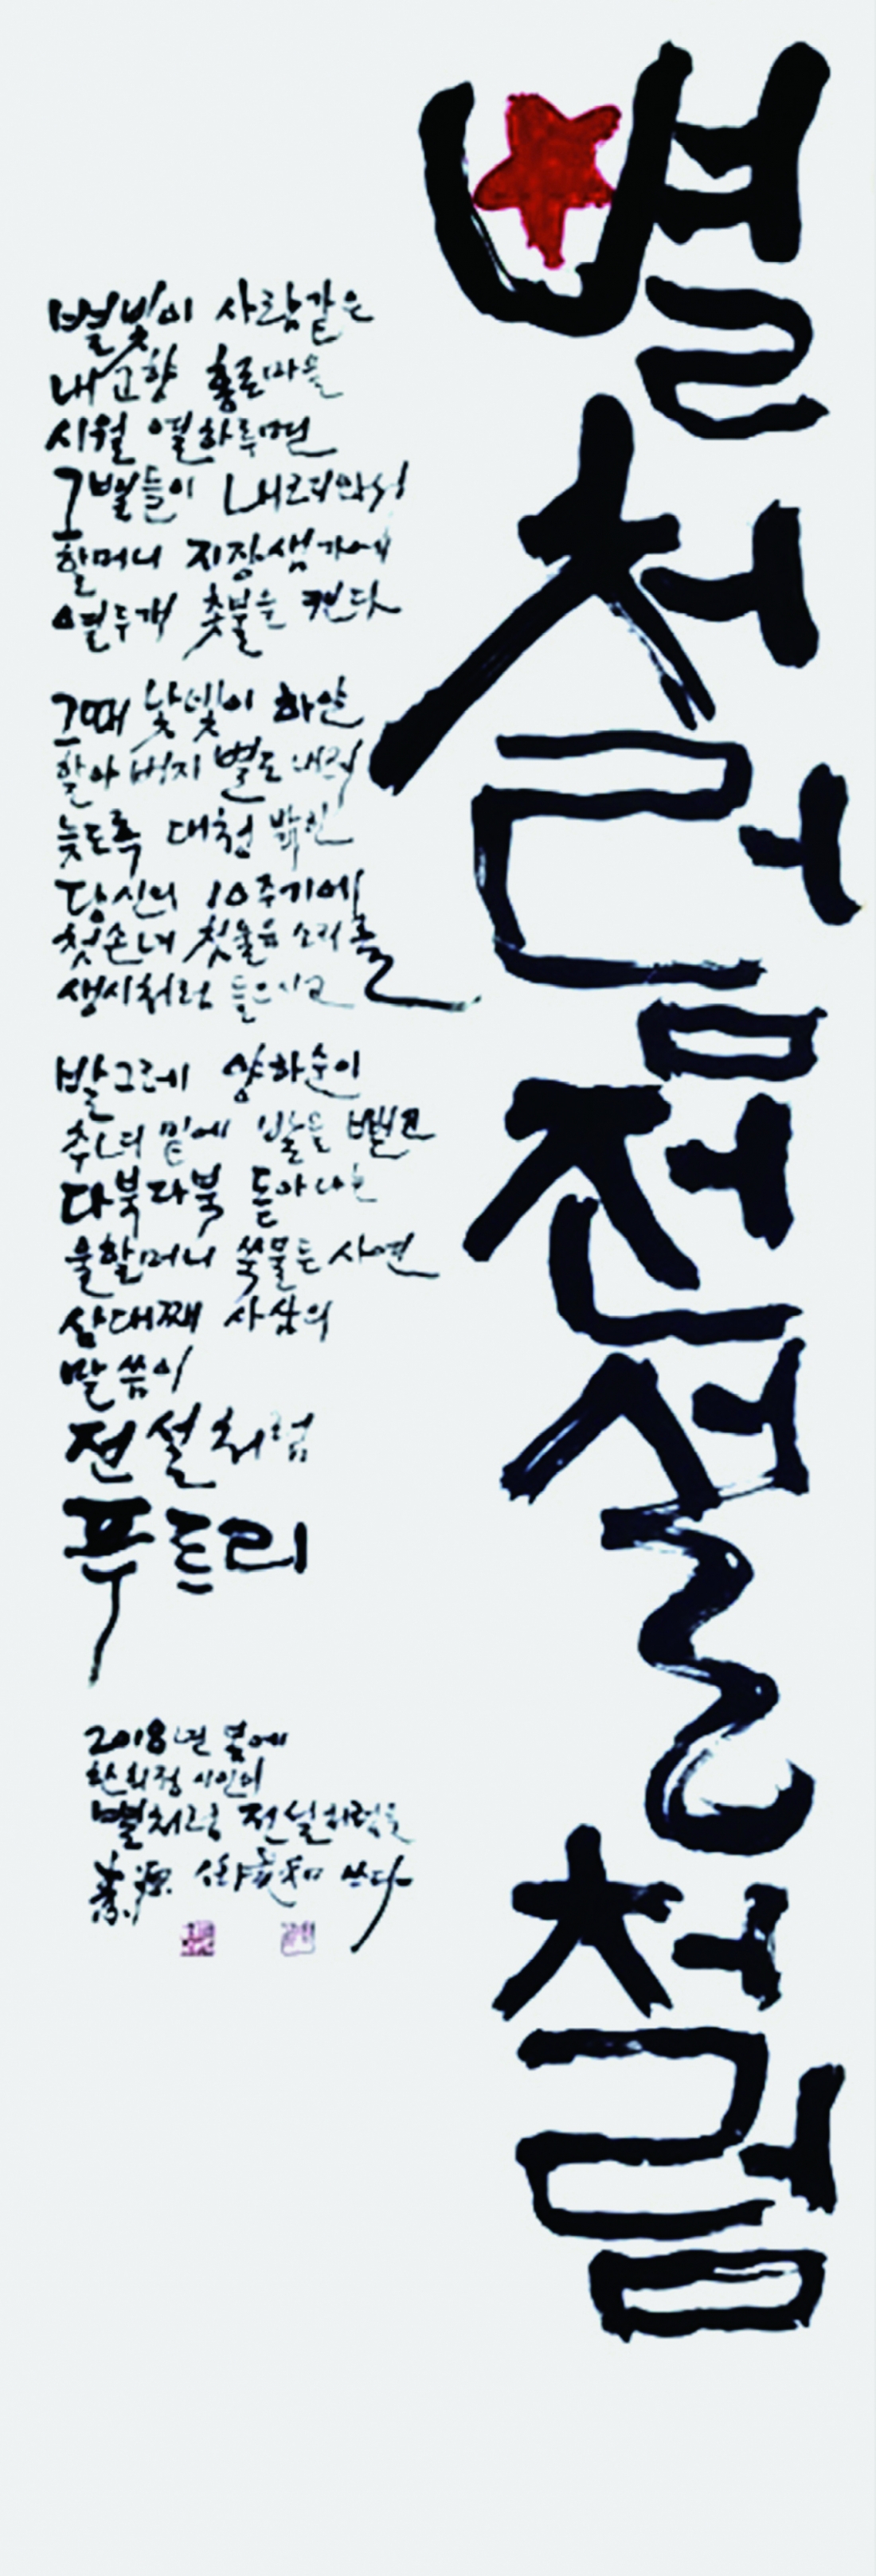 별처럼 전설처럼
별빛이 사람같은
내고향 홍로마을
시월 열하루면
그별들이 내려와서
할머니 지장샘가에
열두개 촛불을 켠다
그때 낯빛이 하얀
할아버지 별도 내려
늦도록 대청 밝힌
당신의 10주기에
첫손녀 첫울음소리를
생시처럼 들으시고
발그레 양하순이
추녀 밑에 발을 뻗고
다북다북 돋아나는
울할머니 쑥물든 사연
삼대째 사삼의
말씀이
전설처럼
푸르리
2018년 봄에
시인의
별처럼 전설처럼을
쓰다